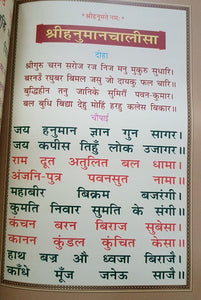 * श्रीहनुमते नमः *
श्रीहनुमानचालीसा
दोहा
श्रीगुरु चरन सरोज रज निज मनु मुकुरु सुधारि।
बरनउँ रघुबर बिमल जसु जो दायकु फल चारि॥
बुद्धिहीन तनु जानिके सुमिरौं पवन-कुमार।
बल बुधि बिद्या देहु मोहिं हरहु कलेस बिकार॥
चौपाई
जय हनुमान ज्ञान गुन सागर।
जय कपीस तिहुँ लोक उजागर॥
राम दूत अतुलित बल धामा।
अंजनि-पुत्र पवनसुत नामा॥
महाबीर बिक्रम बजरंगी।
कुमति निवार सुमति के संगी॥
कंचन बरन बिराज सुबेसा।
कानन कुंडल कुंचित केसा॥
हाथ बज्र औ ध्वजा बिराजै।
काँधे मूँज जनेऊ साजै॥